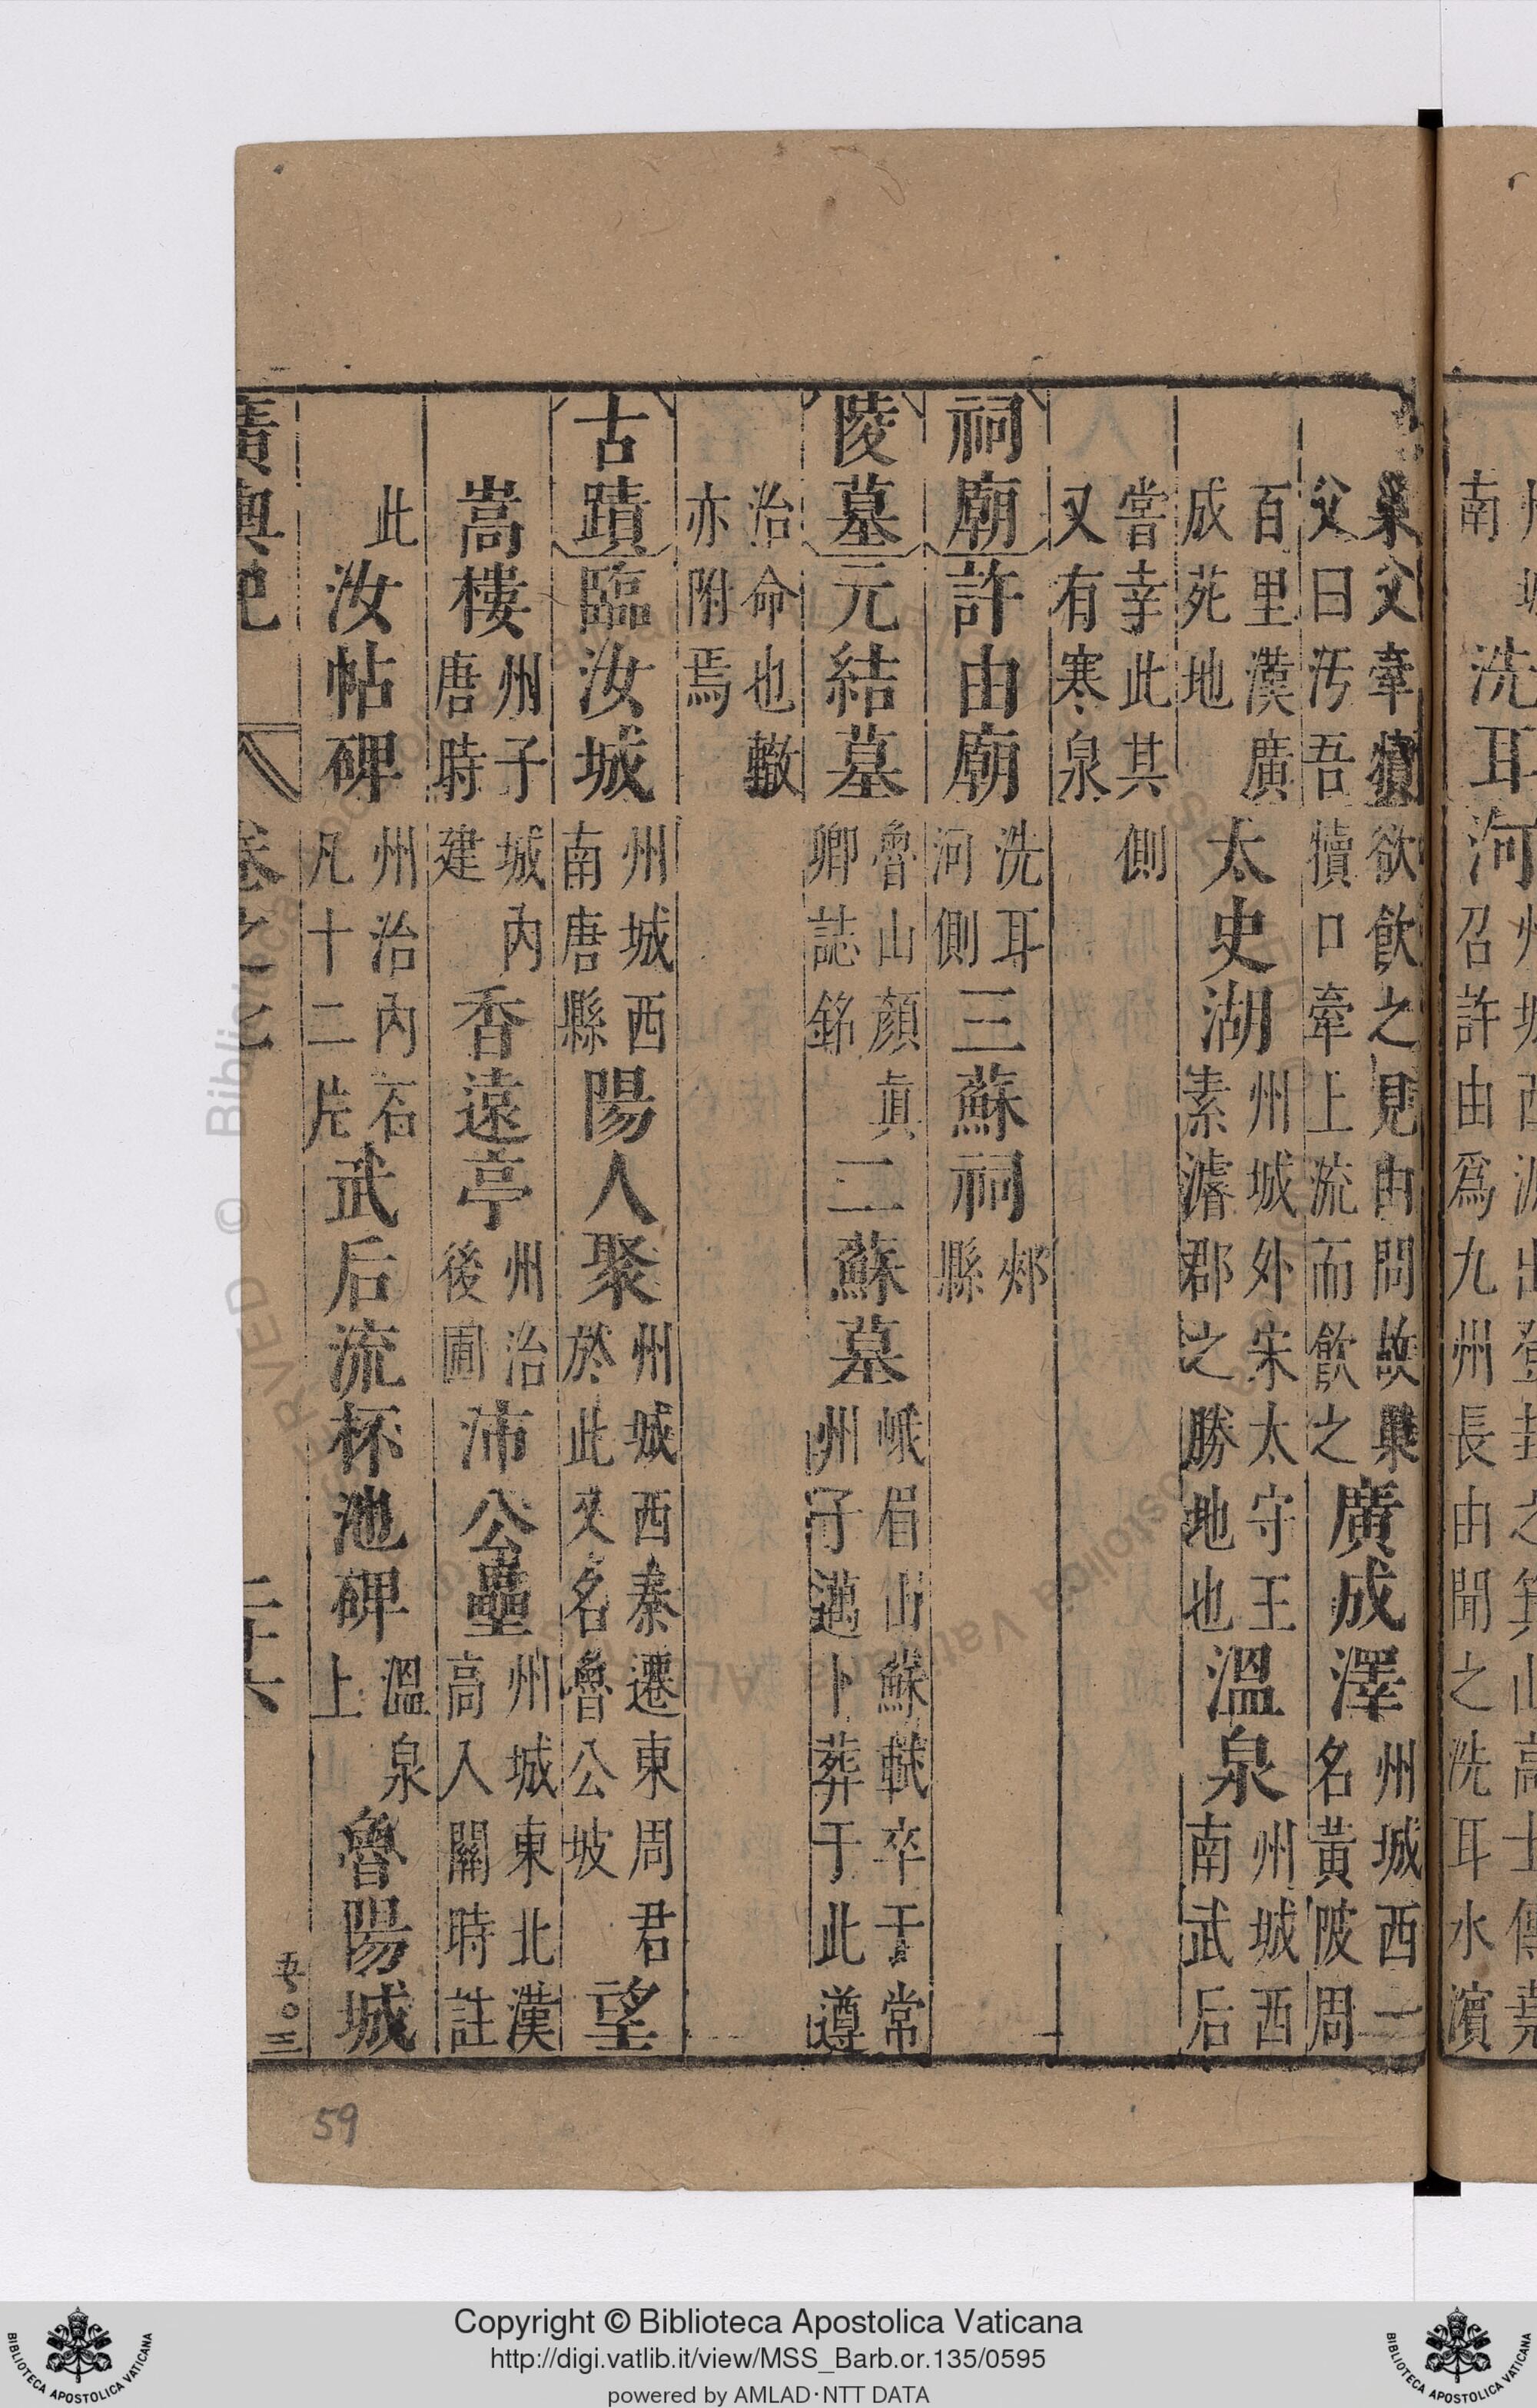 州城南洗耳河州城西源出登封之箕山高士傳堯召許由爲九州長由聞之洗耳水濱
巢父牽犢欲飲之見由問故巢父曰汚吾犢口牽上流而飲之廣成澤州城西一名黃陂周
百里漢廣成苑地太史湖州城外宋太守王素濬郡之勝地也溫泉州城西南武后
嘗幸此其側又有寒泉
祠廟許由廟洗耳河側三蘇祠郟縣
陵墓元結墓魯山顏眞卿誌銘二蘇墓峨眉山蘇軾卒于常州子邁卜葬于此遵
治命也轍亦附焉
古蹟臨汝城州城西南唐縣陽人聚州城西秦遷東周君於此又名魯公坡望
嵩樓州子城內唐時建香遠亭州治後圃沛公壘州城東北漢高入關時註
此汝帖碑州治內石凡十二片武后流杯池碑溫泉上魯陽城
廣輿記 卷之七 二十六
59
Copyright © Biblioteca Apostolica Vaticana
http://digi.vatlib.it/view/MSS_Barb.or.135/0595
powered by AMLAD・NTT DATA
BIBLIOTECA APOSTOLICA VATICANA
BIBLIOTECA APOSTOLICA VATICANA